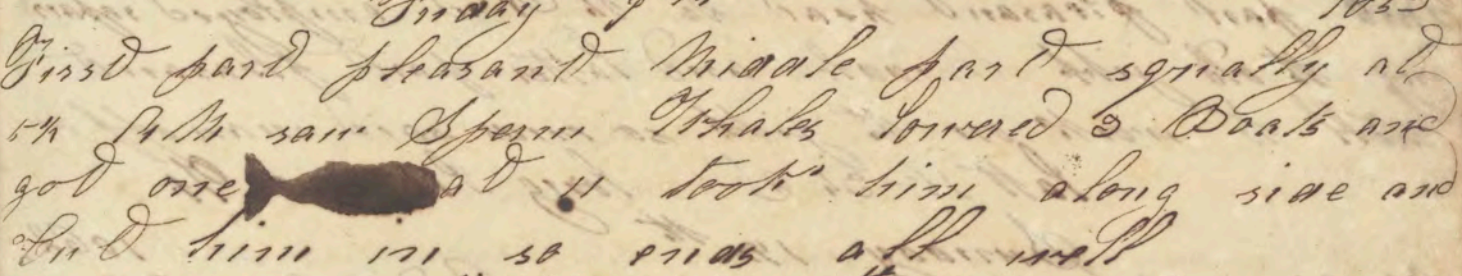 Friday
First part pleasant Middle part squally at
5 1/2 AM saw Sperm Whales lowered 3 Boats and
got one at 11 took him along side and
Cut him in so ends all well